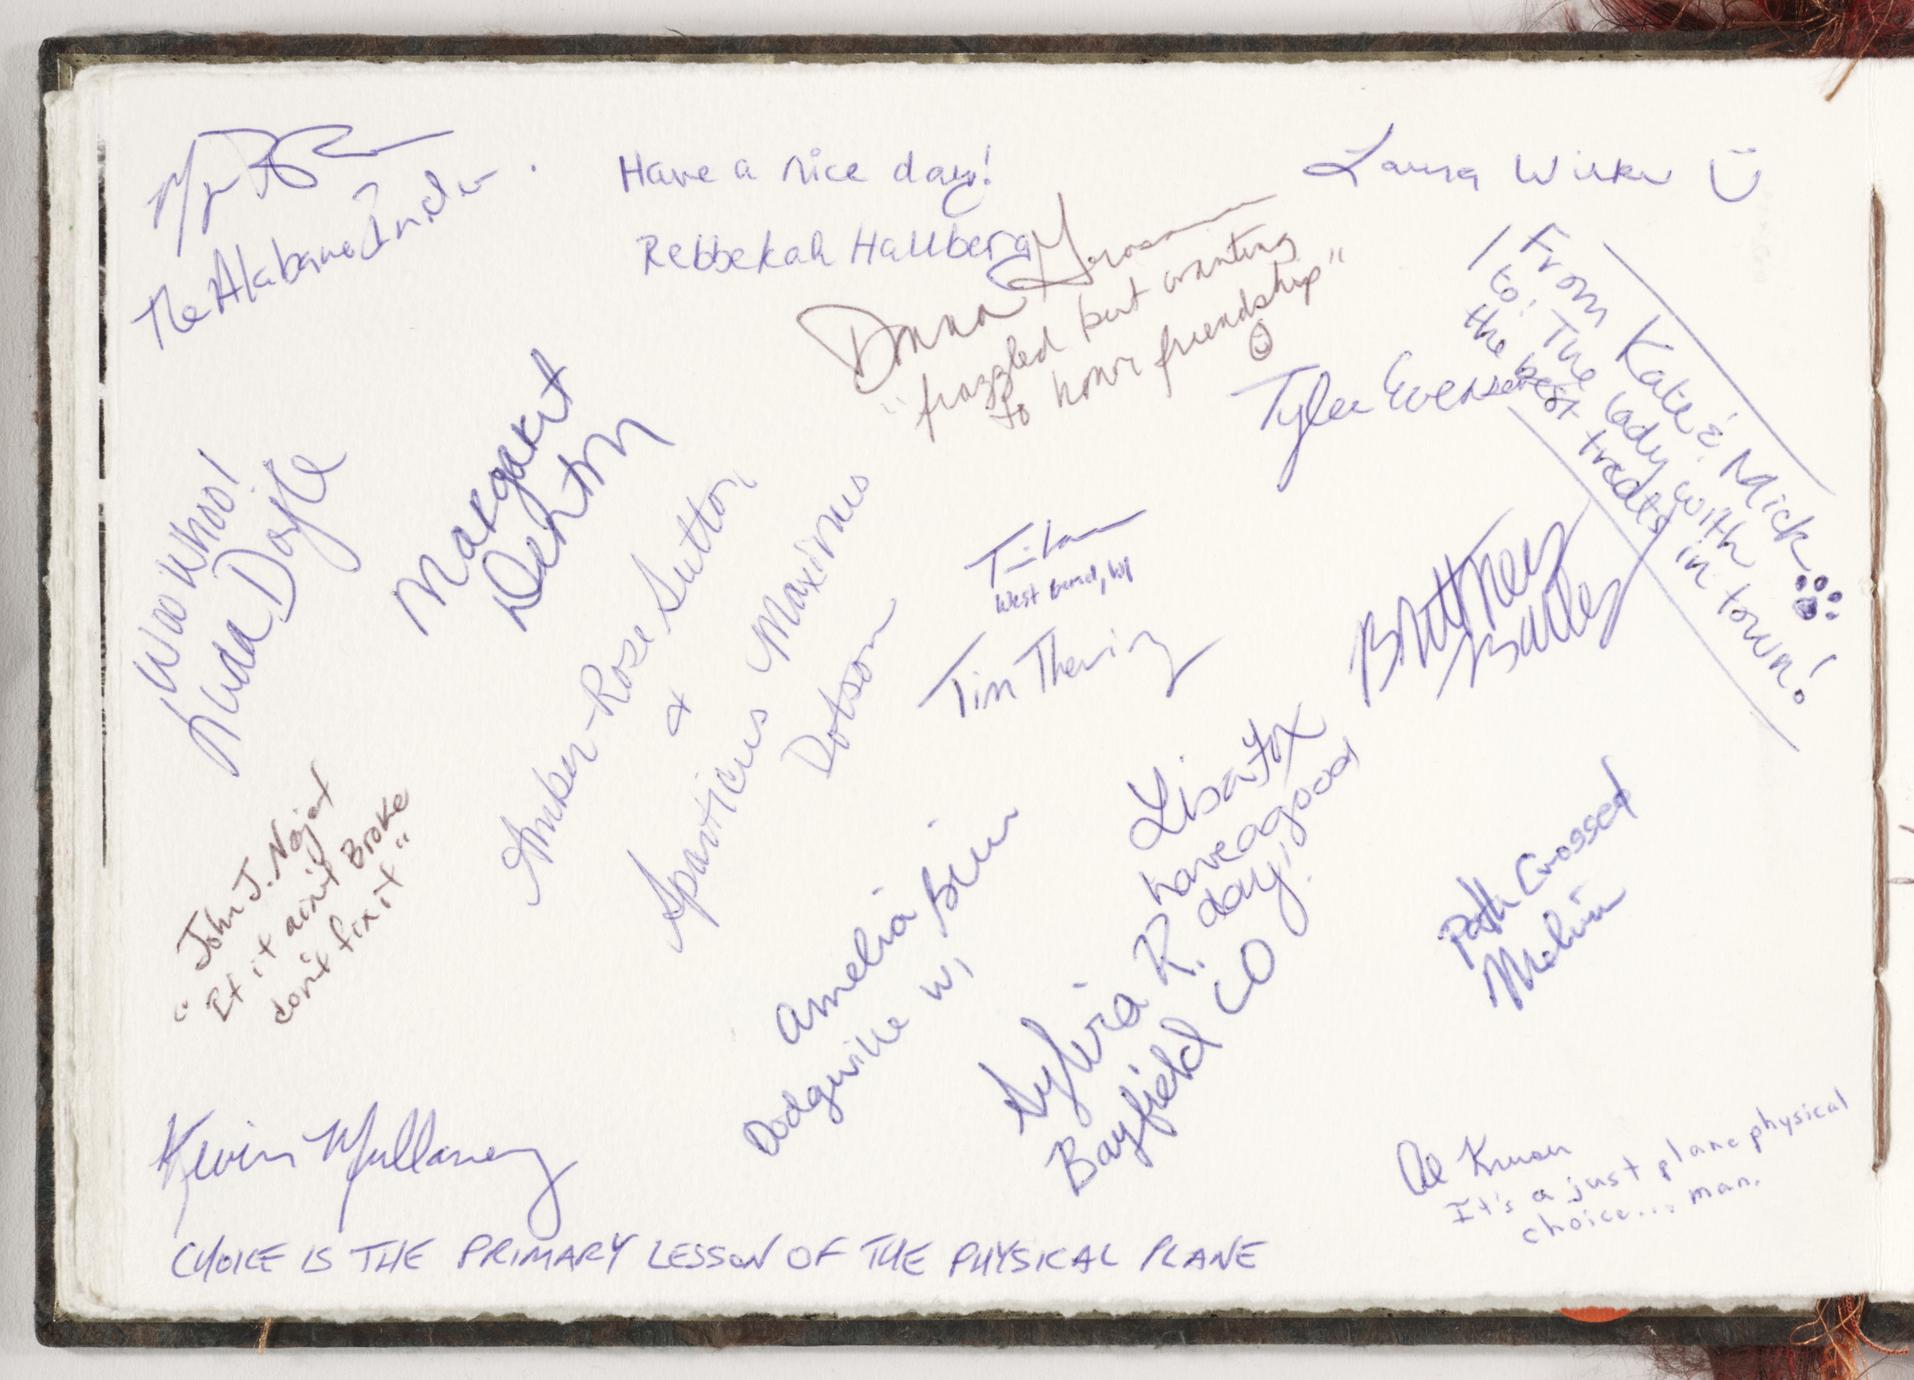 The Alabama
Have a nice day!
Rebbekah Hallberg
Laura
Donna
"frazzled but wanting
to honor friendship"
From Kate & Mick
to: The lady with
the best treats in town!
Tyler Evensen
Woo whoo!
Linda Doyle
Margaret
Denton
Amber-Rose Sutton
&
Sparticus Maximus
Dotson
West Bend, WI
Tim
Brittney
Bailey
John J. Najat
"If it ain't Broke
don't fix it"
Lisa Fox
have a good
day!
Amelia
Dodgeville WI
Sylvia R.
Bayfield CO
Path Crossed
Melvin
Kevin Mullaney
CHOICE IS THE PRIMARY LESSON OF THE PHYSICAL PLANE
Al
It's a just plane physical
choice... man.